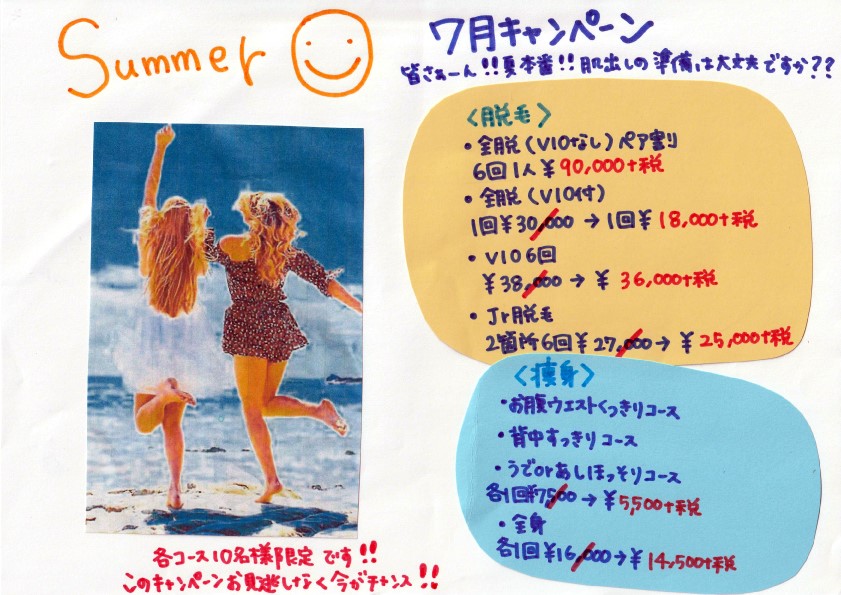 Summer
7月キャンペーン
皆さぁーん!!夏本番!!肌出しの準備は大丈夫ですか??
<脱毛>
・全脱(VIOなし)ペア割り
6回1人¥90,000+税
・全脱(VIO付)
1回¥30,000→1回¥18,000+税
・VIO6回
¥38,000→¥36,000+税
・Jr脱毛
2箇所6回¥27,000→¥25,000+税
<痩身>
・お腹ウエストくっきりコース
・背中すっきりコース
・うでorあしほっそりコース
各1回¥7,500→¥5,500+税
・全身
各1回¥16,000→¥14,500+税
各コース10名様限定です!!
このキャンペーンお見逃しなく今がチャンス!!